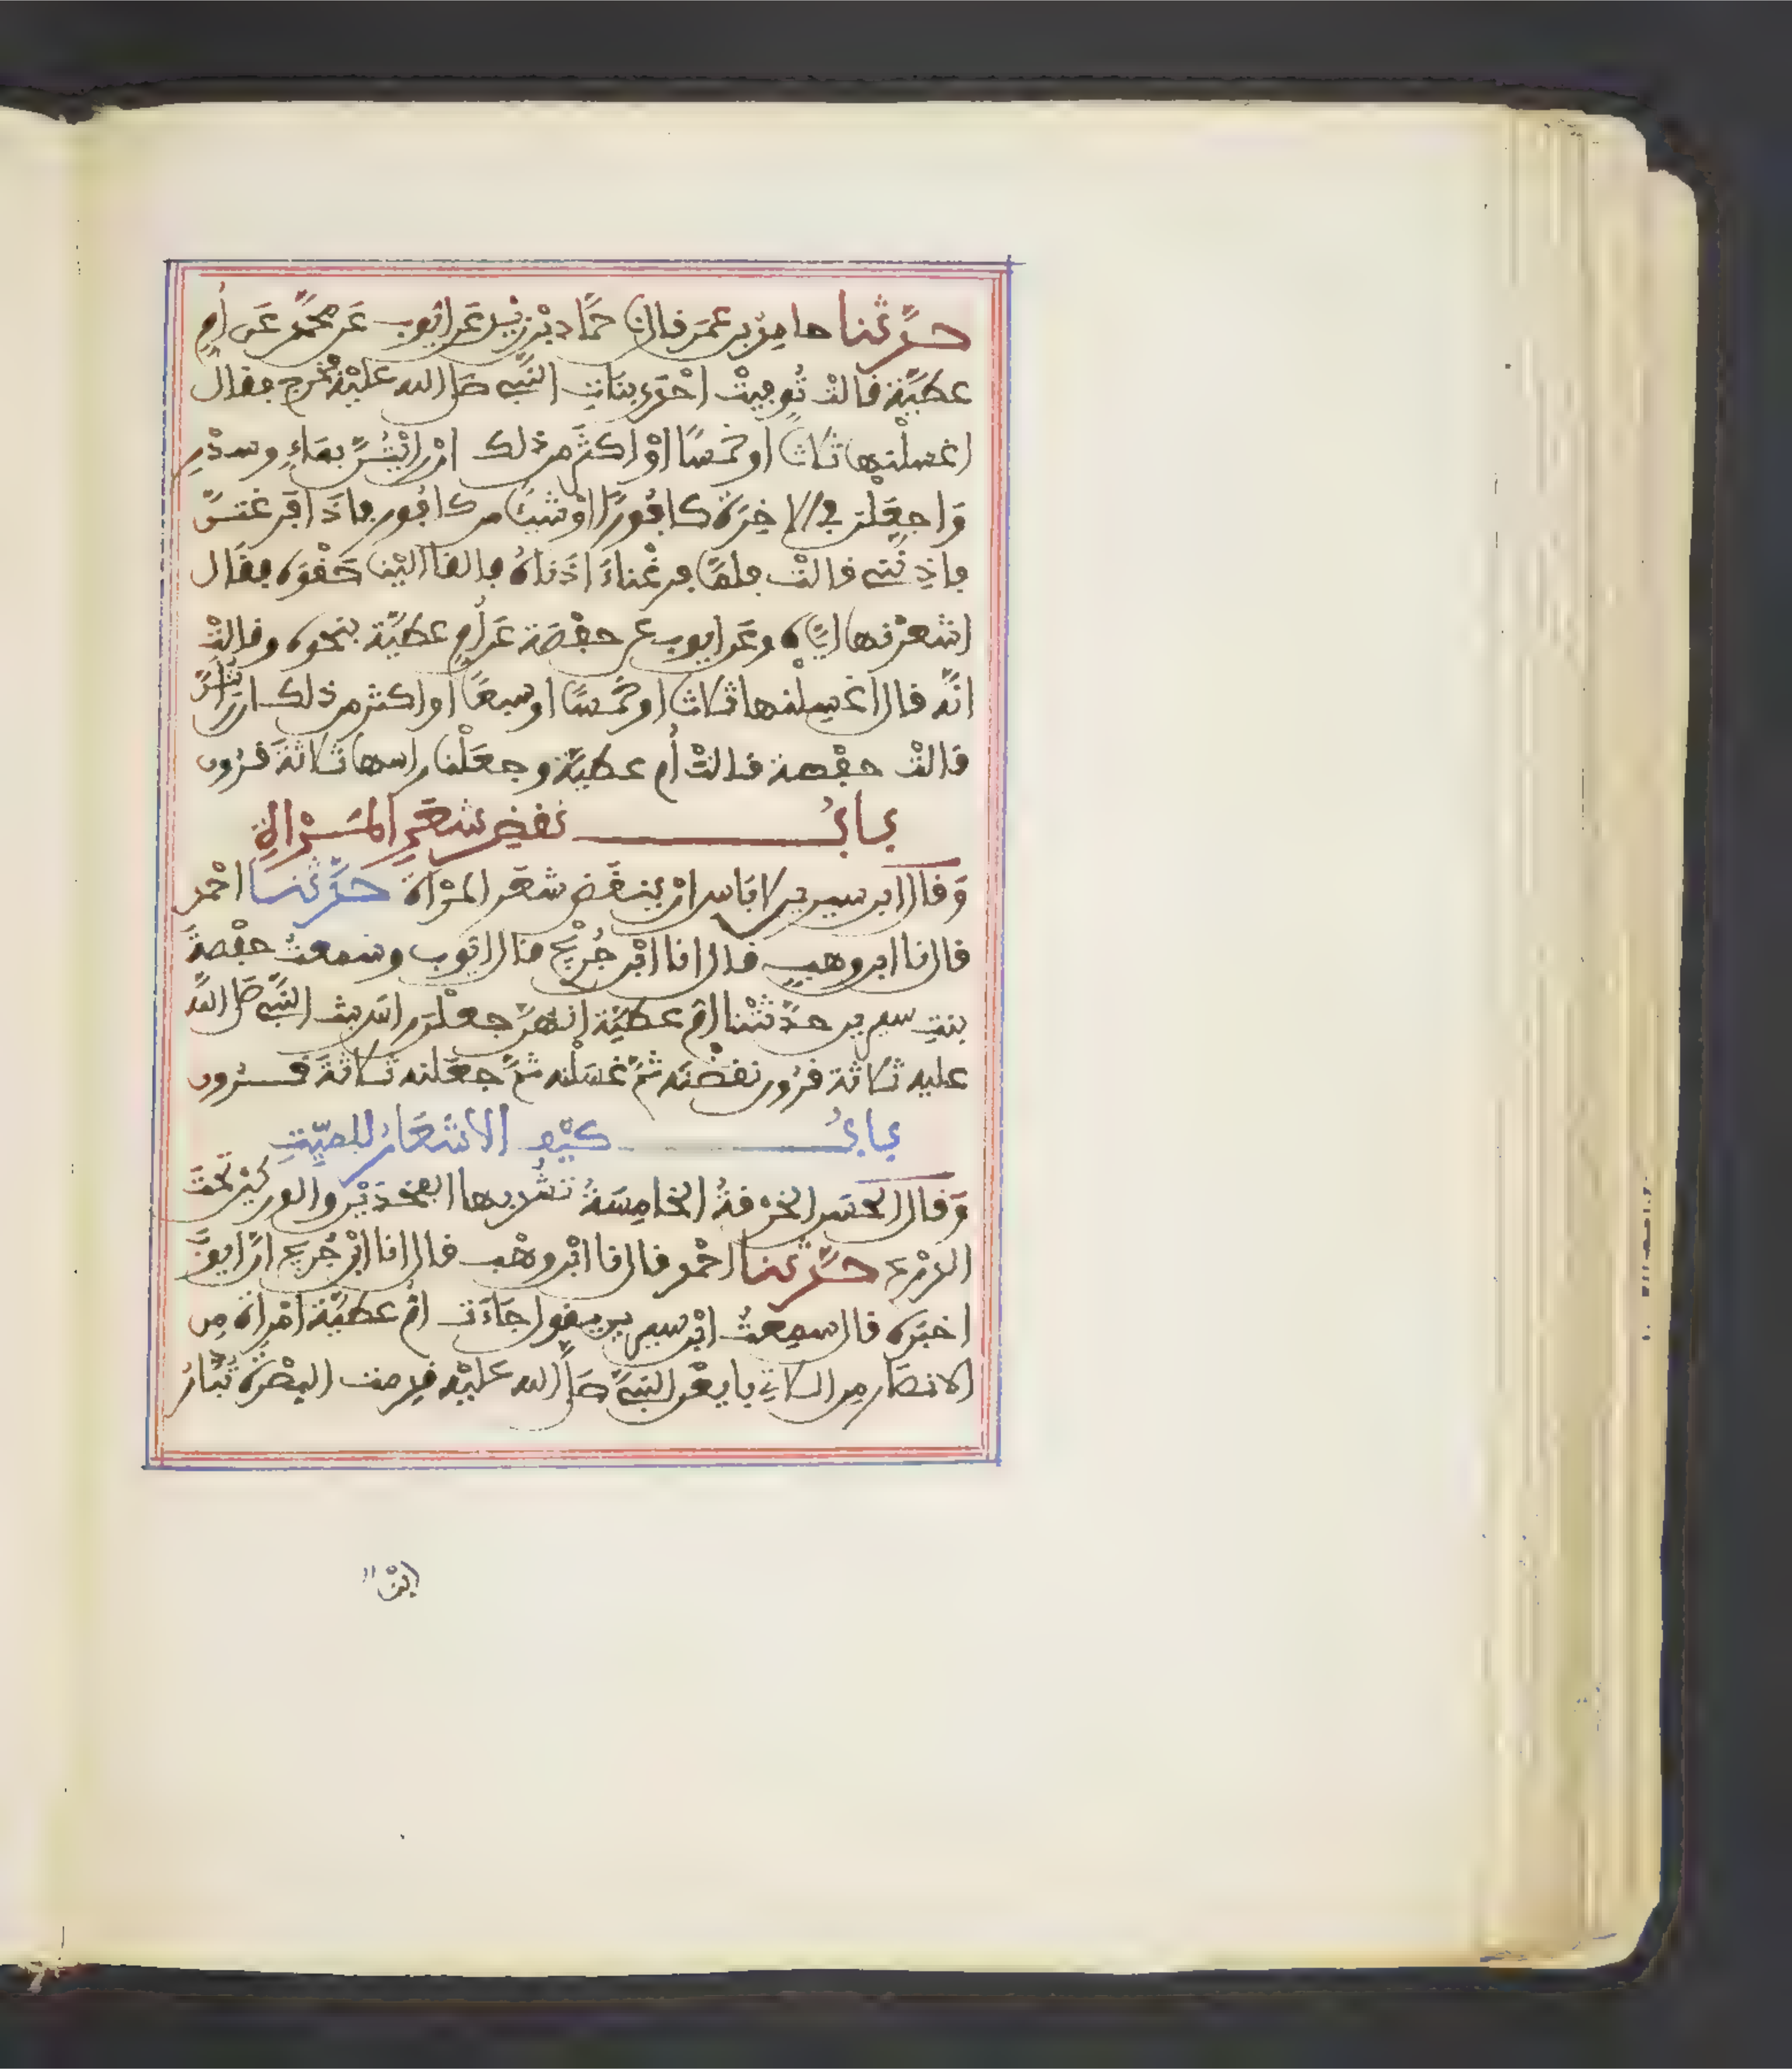 حدثنا حامد بن عمر قال نا حماد بن زيد عن أيوب عن محمد عن أم
عطية قالت توفيت احدى بنات النبي صلى الله عليه فخرج فقال
اغسلنها ثلاثا او خمسا او اكثر من ذلك ان رايتن بماء وسدر
واجعلن في الاخرة كافورا او شيئا من كافور فاذا فرغتن
فاذنني قالت فلما فرغنا اذناه فالقا الينا حقوه فقال
اشعرنها اياه وعن ايوب عن حفصة عن أم عطية بنحوه وقالت
انه قال اغسلنها ثلاثا او خمسا او سبعا او اكثر من ذلك ان رايتن
قالت حفصة قالت أم عطية وجعلنا راسها ثلاثة قرون
باب نقض شعر المرأة
وقال ابن سيرين لا باس ان ينقض شعر المرأة حدثنا احمد
قال نا ابن وهب قال انا ابن جريج قال ايوب وسمعت حفصة
بنت سيرين حدثتنا ام عطية انهن جعلن راس بنت النبي صلى الله
عليه ثلاثة قرون نقضنه ثم غسلنه ثم جعلنه ثلاثة قرون
باب كيف الاشعار للميت
وقال الحسن الخرقة الخامسة تشد بها الفخذين والوركين تحت
الدرع حدثنا احمد قال نا ابن وهب قال انا ابن جريج ان ايوب
اخبره قال سمعت ابن سيرين يقول جاءت ام عطية امراة من
الانصار من اللاتي بايعن النبي صلى الله عليه قدمت البصرة تبادر
ابنا